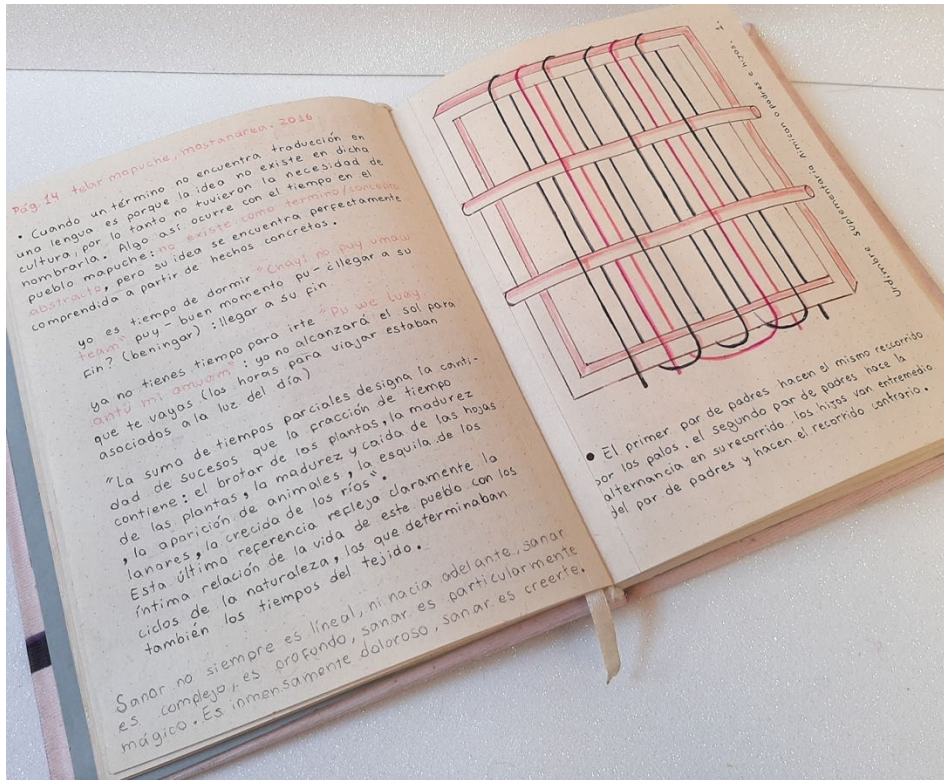 Pág. 14 telar mapuche, mastandrea. 2016
• Cuando un término no encuentra traducción en
una lengua es porque la idea no existe en dicha
cultura, por lo tanto no tuvieron la necesidad de
nombrarla. Algo así ocurre con el tiempo en el
pueblo mapuche: no existe como termino/concepto
abstracto, pero su idea se encuentra perfectamente
comprendida a partir de hechos concretos.
yo es tiempo de dormir "Chayi no puy umaw
team" puy - buen momento pu - ¿llegar a su
fin? (beningar) : llegar a su fin
ya no tienes tiempo para irte "Pu we luay
antü mi amuam" : ya no alcanzará el sol para
que te vayas (las horas para viajar estaban
asociados a la luz del día)
"La suma de tiempos parciales designa la canti-
dad de sucesos que la fracción de tiempo
contiene: el brotar de las plantas, la madurez
de las plantas, la madurez y caída de las hojas
, la aparición de animales, la esquila de los
lanares, la crecida de los ríos".
Esta última referencia refleja claramente la
íntima relación de la vida de este pueblo con los
ciclos de la naturaleza, los que determinaban
también los tiempos del tejido.
Sanar no siempre es líneal, ni hacia adelante, sanar
es complejo, es profundo, sanar es particularmente
mágico. Es inmensamente doloroso, sanar es creerte.
Urdimbre Suplementaria ñimican o padres e hijos.
• El primer par de padres hacen el mismo reccorrido
por los palos. el segundo par de padres hace la
alternancia en su recorrido. los hijos van entremedio
del par de padres y hacen el recorrido contrario.